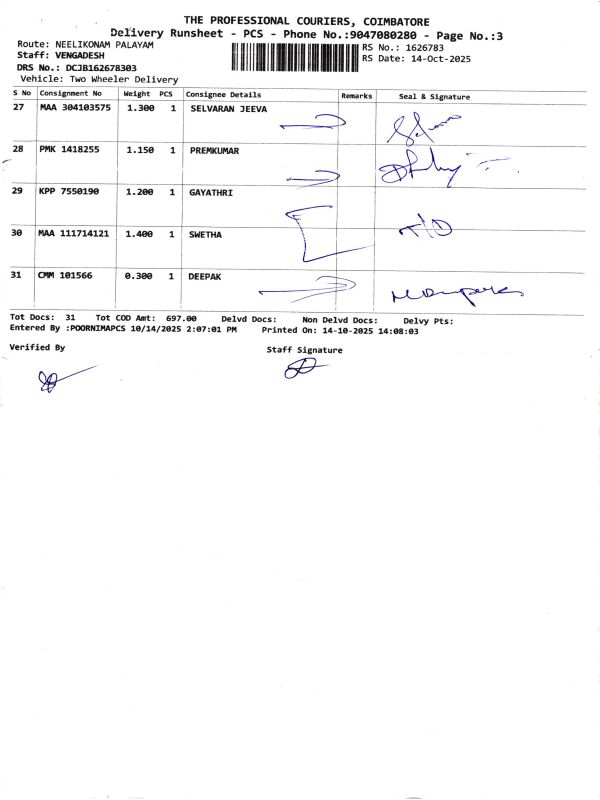 THE PROFESSIONAL COURIERS, COIMBATORE
Delivery Runsheet - PCS - Phone No.:9047080280 - Page No.:3
Route: NEELIKONAM PALAYAM
RS No.: 1626783
Staff: VENGADESH
RS Date: 14-Oct-2025
DRS No.: DCJB162678303
Vehicle: Two Wheeler Delivery
S No Consignment No Weight PCS Consignee Details Remarks Seal & Signature
27 MAA 304103575 1.300 1 SELVARAN JEEVA
28 PMK 1418255 1.150 1 PREMKUMAR
29 KPP 7550190 1.200 1 GAYATHRI
30 MAA 111714121 1.400 1 SWETHA T/D
31 CMM 101566 0.300 1 DEEPAK
Tot Docs: 31 Tot COD Amt: 697.00 Delvd Docs: Non Delvd Docs: Delvy Pts:
Entered By :POORNIMAPCS 10/14/2025 2:07:01 PM Printed On: 14-10-2025 14:08:03
Verified By Staff Signature